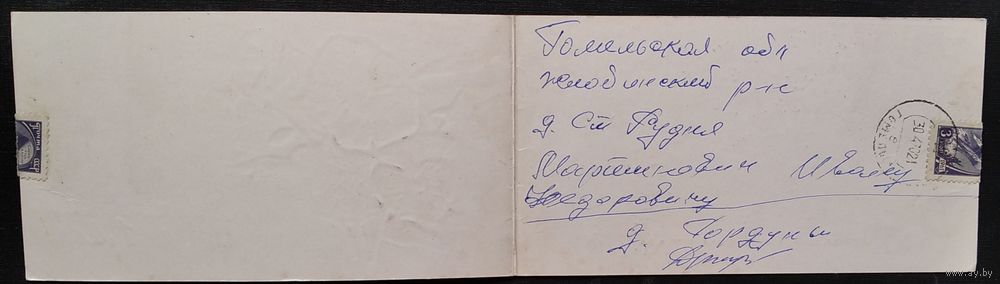 Гомельская обл
Жлобинский р-н
д. Ст Рудня
Мартинович Ивану
Федоровичу
д. Гордуны
ПОЧТА СССР
ГОМЕЛЬ
30 4 70 21
3
www.ay.by